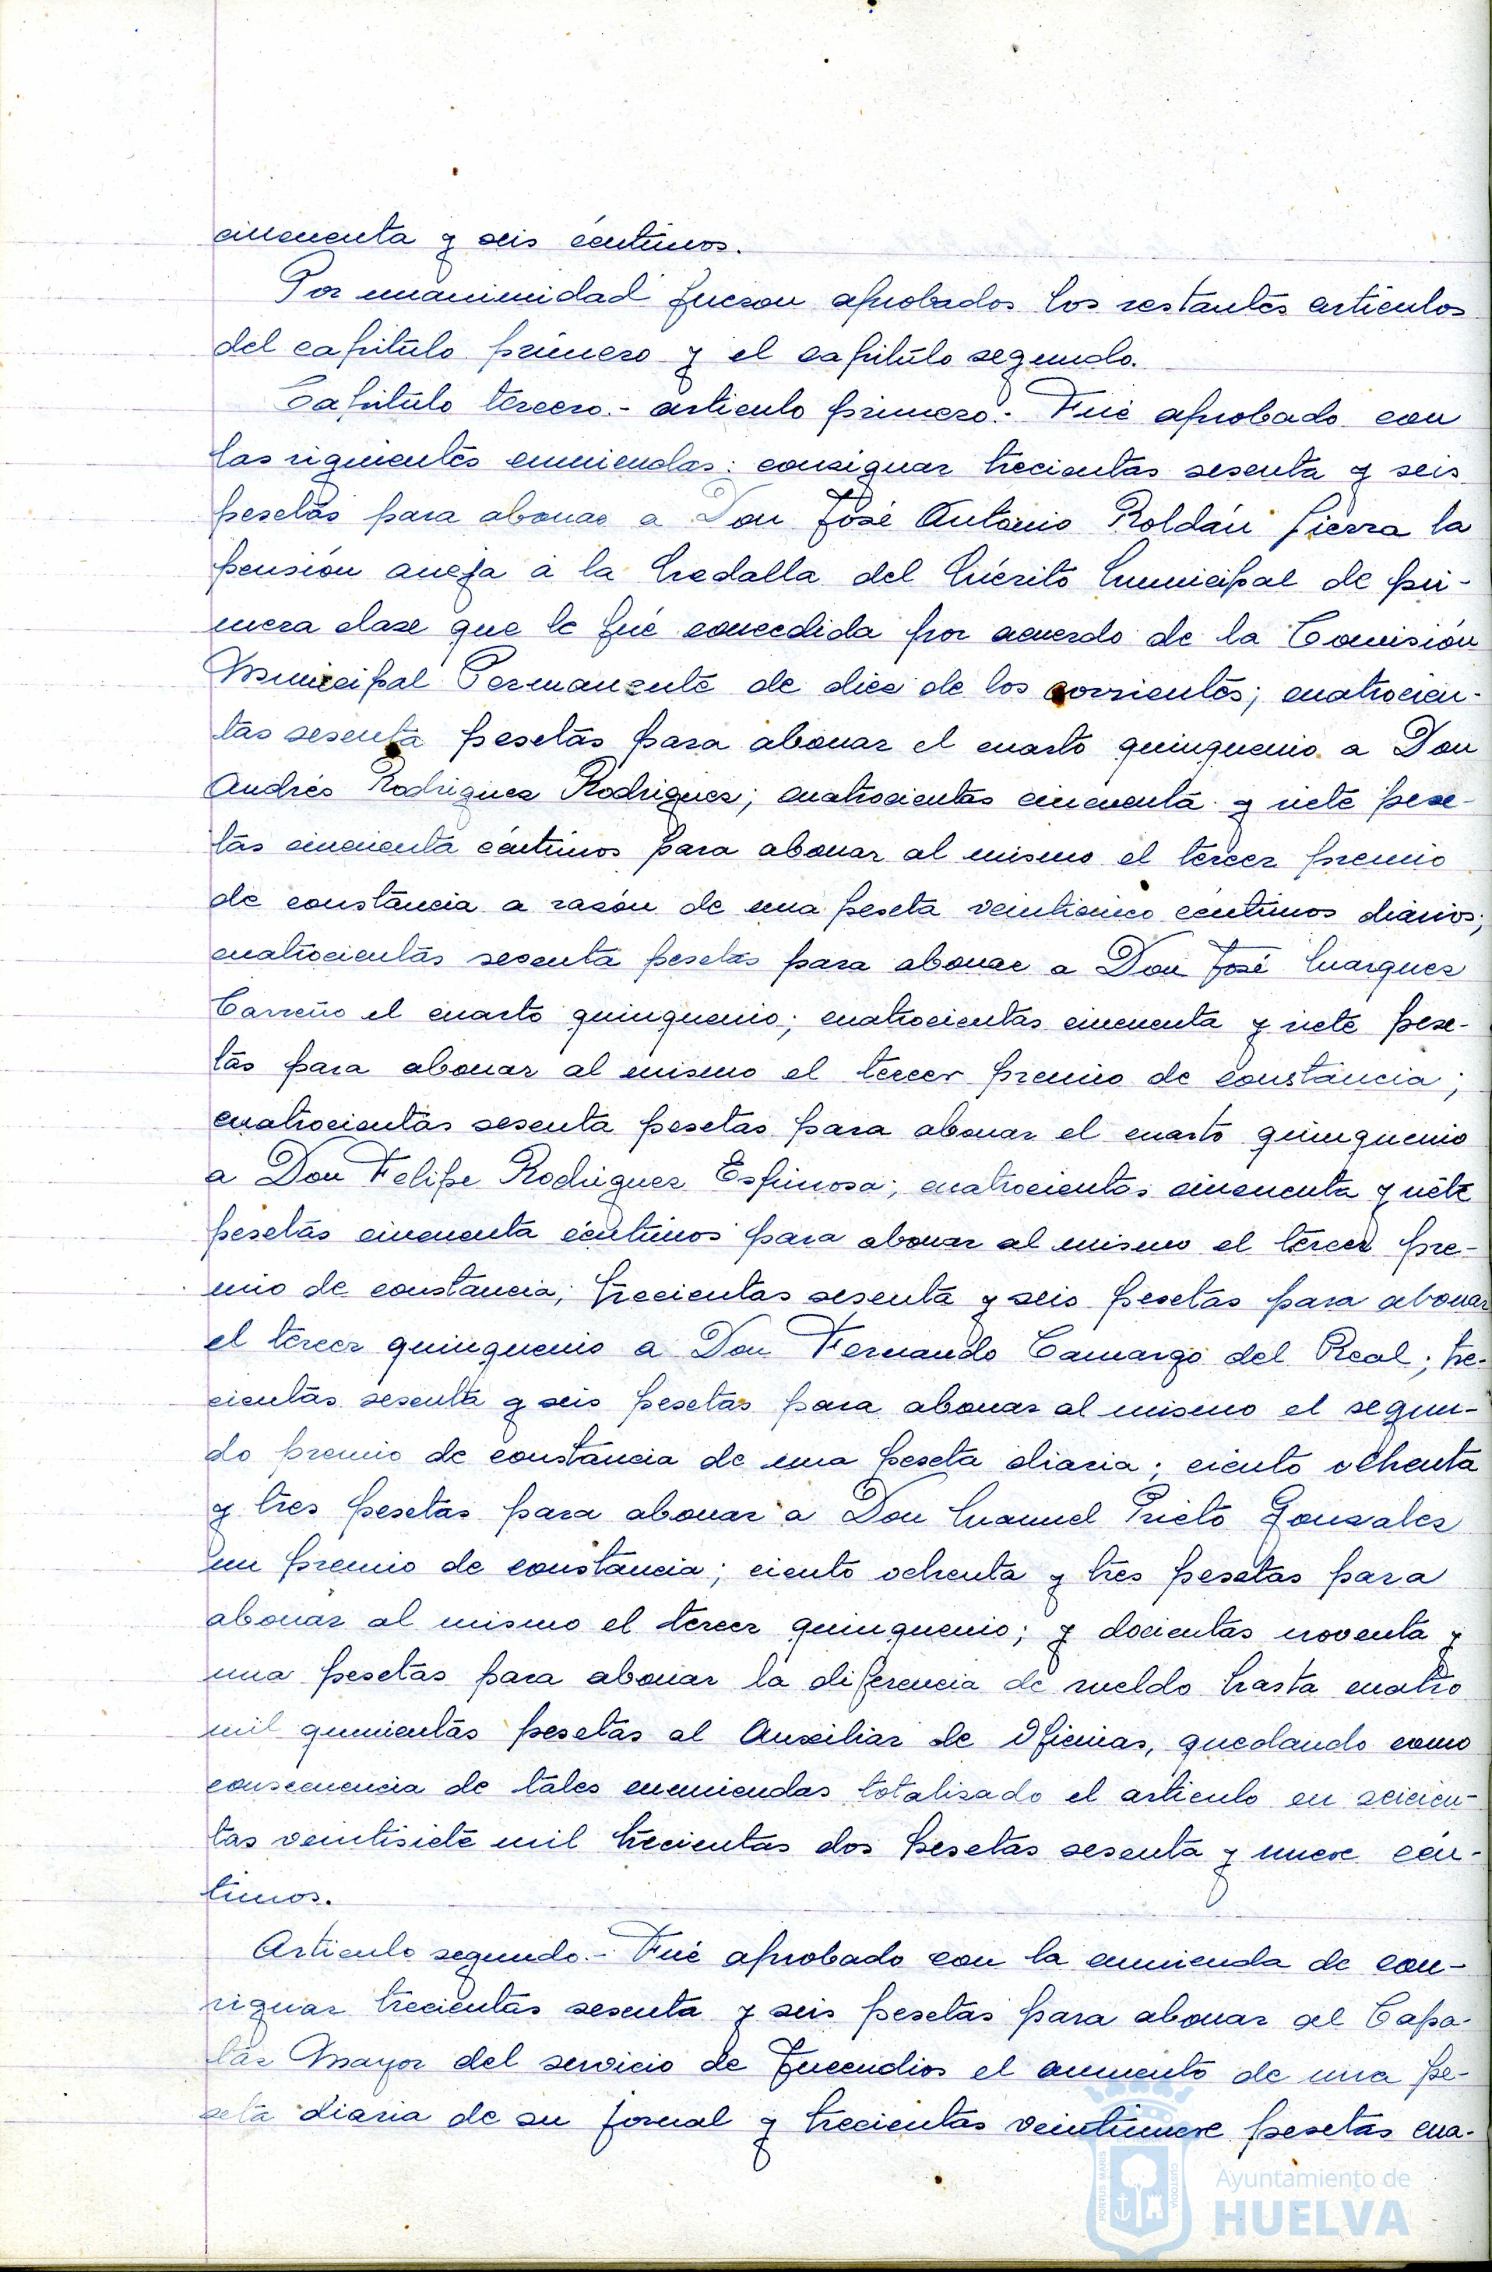 cincuenta y seis céntimos.
Por unanimidad fueron aprobados los restantes artículos
del capítulo primero y el capítulo segundo.
Capítulo tercero.- artículo primero.- Fué aprobado con
las siguientes enmiendas: consignar trecientas sesenta y seis
pesetas para abonar a Don José Antonio Roldán Sierra la
pensión aneja a la Medalla del Mérito Municipal de pri-
mera clase que le fué concedida por acuerdo de la Comisión
Municipal Permanente de diez de los corrientes; cuatrocien-
tas sesenta pesetas para abonar el cuarto quinquenio a Don
Andrés Rodriguez Rodriguez; cuatrocientas cincuenta y siete pese-
tas cincuenta céntimos para abonar al mismo el tercer premio
de constancia a razón de una peseta veinticinco céntimos diarios;
cuatrocientas sesenta pesetas para abonar a Don José Marquez
Carreño el cuarto quinquenio; cuatrocientas cincuenta y siete pese-
tas para abonar al mismo el tercer premio de constancia;
cuatrocientas sesenta pesetas para abonar el cuarto quinquenio
a Don Felipe Rodriguez Espinosa; cuatrocientas cincuenta y siete
pesetas cincuenta céntimos para abonar al mismo el tercer pre-
mio de constancia; trecientas sesenta y seis pesetas para abonar
el tercer quinquenio a Don Fernando Camargo del Real; tre-
cientas sesenta y seis pesetas para abonar al mismo el segun-
do premio de constancia de una peseta diaria; ciento ochenta
y tres pesetas para abonar a Don Manuel Prieto Gonzalez
un premio de constancia; ciento ochenta y tres pesetas para
abonar al mismo el tercer quinquenio; y docientas noventa y
una pesetas para abonar la diferencia de sueldo hasta cuatro
mil quinientas pesetas al Auxiliar de Oficinas, quedando como
consecuencia de tales enmiendas totalizado el artículo en seicien-
tas veintisiete mil trecientas dos pesetas sesenta y nueve cén-
timos.
Artículo segundo.- Fué aprobado con la enmienda de con-
signar trecientas sesenta y seis pesetas para abonar al Capa-
taz Mayor del servicio de Incendios el aumento de una pe-
seta diaria de su jornal y trecientas veintinueve pesetas cua-
PORTUS MARIS CUSTODIA
Ayuntamiento de
HUELVA